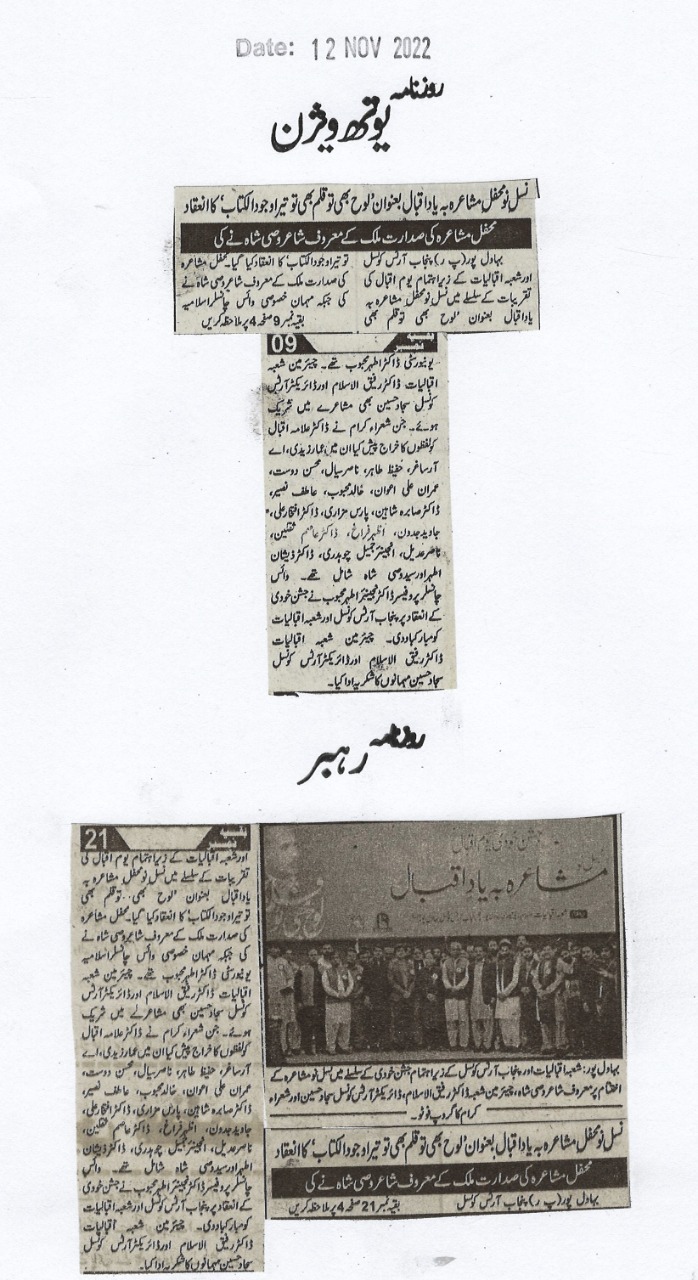 Date: 12 NOV 2022
روزنامہ
یوتھ ویژن
نسل نو محفل مشاعرہ بہ یاد اقبال بعنوان 'لوح بھی تو قلم بھی تو تیرا وجود الکتاب' کا انعقاد
محفل مشاعرہ کی صدارت ملک کے معروف شاعر وصی شاہ نے کی
بہاول پور (پ ر) پنجاب آرٹس کونسل
اور شعبہ اقبالیات کے زیر اہتمام یوم اقبال کی
تقریبات کے سلسلے میں نسل نو محفل مشاعرہ بہ
یاد اقبال بعنوان 'لوح بھی تو قلم بھی
تو تیرا وجود الکتاب' کا انعقاد کیا گیا۔ محفل مشاعرہ
کی صدارت ملک کے معروف شاعر وصی شاہ نے
کی جبکہ مہمان خصوصی وائس چانسلر اسلامیہ
بقیہ نمبر 9 صفحہ 4 پر ملاحظہ کریں
بقیہ نمبر 09
یونیورسٹی ڈاکٹر اطہر محبوب تھے۔ چیئرمین شعبہ
اقبالیات ڈاکٹر رفیق الاسلام اور ڈائریکٹر آرٹس
کونسل سجاد حسین بھی مشاعرے میں شریک
ہوئے۔ جن شعراء کرام نے ڈاکٹر علامہ اقبال
کو لفظوں کا خراج پیش کیا ان میں عمار زیدی، اے
آر ساغر، حفیظ طاہر، ناصر سیال، محسن دوست،
عمران علی اعوان، خالد محبوب، عاطف نصیر،
ڈاکٹر صابرہ شاہین، پارس مزاری، ڈاکٹر افتخار علی،
جاوید جدون، اظہر فراغ، ڈاکٹر عاصم ثقلین،
ناصر عدیل، انجینئر جمیل چوہدری، ڈاکٹر ذیشان
اطہر اور سید وصی شاہ شامل تھے۔ وائس
چانسلر پروفیسر ڈاکٹر انجینئر اطہر محبوب نے جشن خودی
کے انعقاد پر پنجاب آرٹس کونسل اور شعبہ اقبالیات
کو مبارکباد دی۔ چیئرمین شعبہ اقبالیات
ڈاکٹر رفیق الاسلام اور ڈائریکٹر آرٹس کونسل
سجاد حسین مہمانوں کا شکریہ ادا کیا۔
روزنامہ
رہبر
جشن خودی یوم اقبال
مشاعرہ بہ یاد اقبال
بہاول پور: شعبہ اقبالیات اور پنجاب آرٹس کونسل کے زیر اہتمام جشن خودی کے سلسلے میں نسل نو مشاعرہ کے
اختتام پر معروف شاعر وصی شاہ، چیئرمین شعبہ ڈاکٹر رفیق الاسلام، ڈائریکٹر آرٹس کونسل سجاد حسین اور شعراء
کرام کا گروپ فوٹو۔
نسل نو محفل مشاعرہ بہ یاد اقبال بعنوان 'لوح بھی تو قلم بھی تو تیرا وجود الکتاب' کا انعقاد
محفل مشاعرہ کی صدارت ملک کے معروف شاعر وصی شاہ نے کی
بہاول پور (پ ر) پنجاب آرٹس کونسل
بقیہ نمبر 21 صفحہ 4 پر ملاحظہ کریں
بقیہ نمبر 21
اور شعبہ اقبالیات کے زیر اہتمام یوم اقبال کی
تقریبات کے سلسلے میں نسل نو محفل مشاعرہ بہ
یاد اقبال بعنوان 'لوح بھی تو قلم بھی
تو تیرا وجود الکتاب' کا انعقاد کیا گیا۔ محفل مشاعرہ
کی صدارت ملک کے معروف شاعر وصی شاہ نے
کی جبکہ مہمان خصوصی وائس چانسلر اسلامیہ
یونیورسٹی ڈاکٹر اطہر محبوب تھے۔ چیئرمین شعبہ
اقبالیات ڈاکٹر رفیق الاسلام اور ڈائریکٹر آرٹس
کونسل سجاد حسین بھی مشاعرے میں شریک
ہوئے۔ جن شعراء کرام نے ڈاکٹر علامہ اقبال
کو لفظوں کا خراج پیش کیا ان میں عمار زیدی، اے
آر ساغر، حفیظ طاہر، ناصر سیال، محسن دوست،
عمران علی اعوان، خالد محبوب، عاطف نصیر،
ڈاکٹر صابرہ شاہین، پارس مزاری، ڈاکٹر افتخار علی،
جاوید جدون، اظہر فراغ، ڈاکٹر عاصم ثقلین،
ناصر عدیل، انجینئر جمیل چوہدری، ڈاکٹر ذیشان
اطہر اور سید وصی شاہ شامل تھے۔ وائس
چانسلر پروفیسر ڈاکٹر انجینئر اطہر محبوب نے جشن خودی
کے انعقاد پر پنجاب آرٹس کونسل اور شعبہ اقبالیات
کو مبارکباد دی۔ چیئرمین شعبہ اقبالیات
ڈاکٹر رفیق الاسلام اور ڈائریکٹر آرٹس کونسل
سجاد حسین مہمانوں کا شکریہ ادا کیا۔